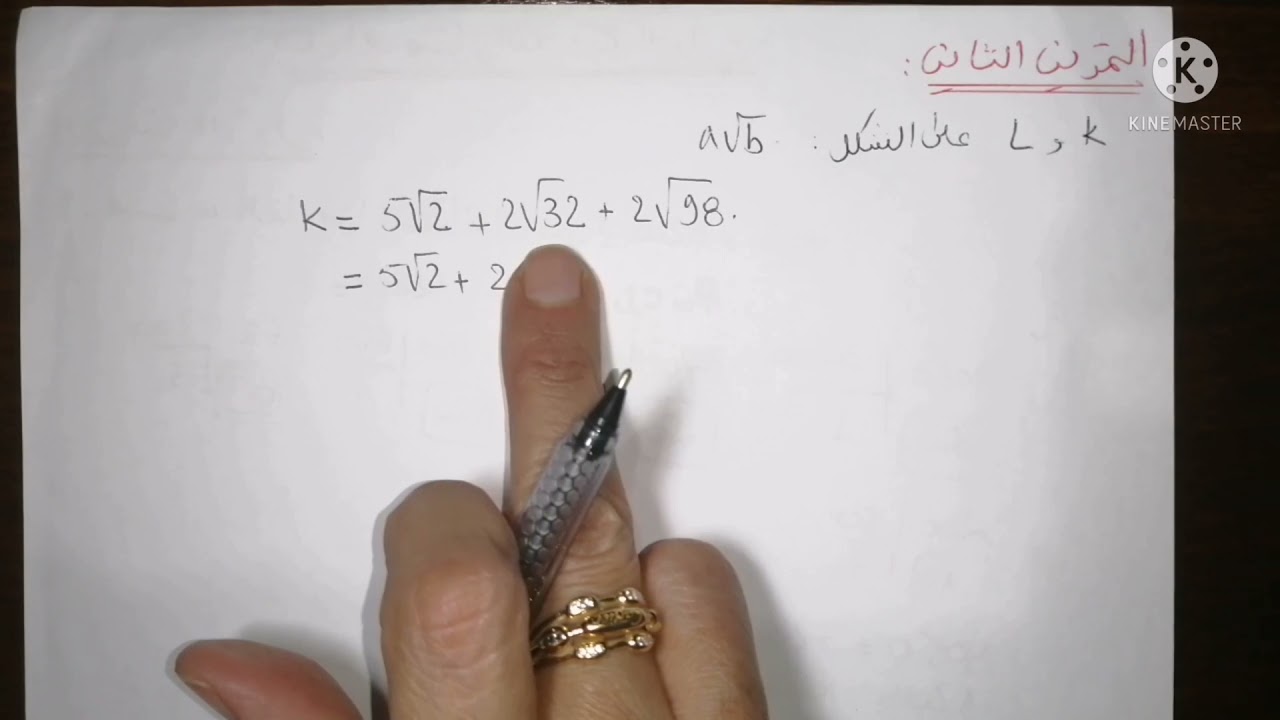 التمرين الثاني :
K و L على الشكل : a√b
K = 5√2 + 2√32 + 2√98.
= 5√2 + 2
K
KINEMASTER